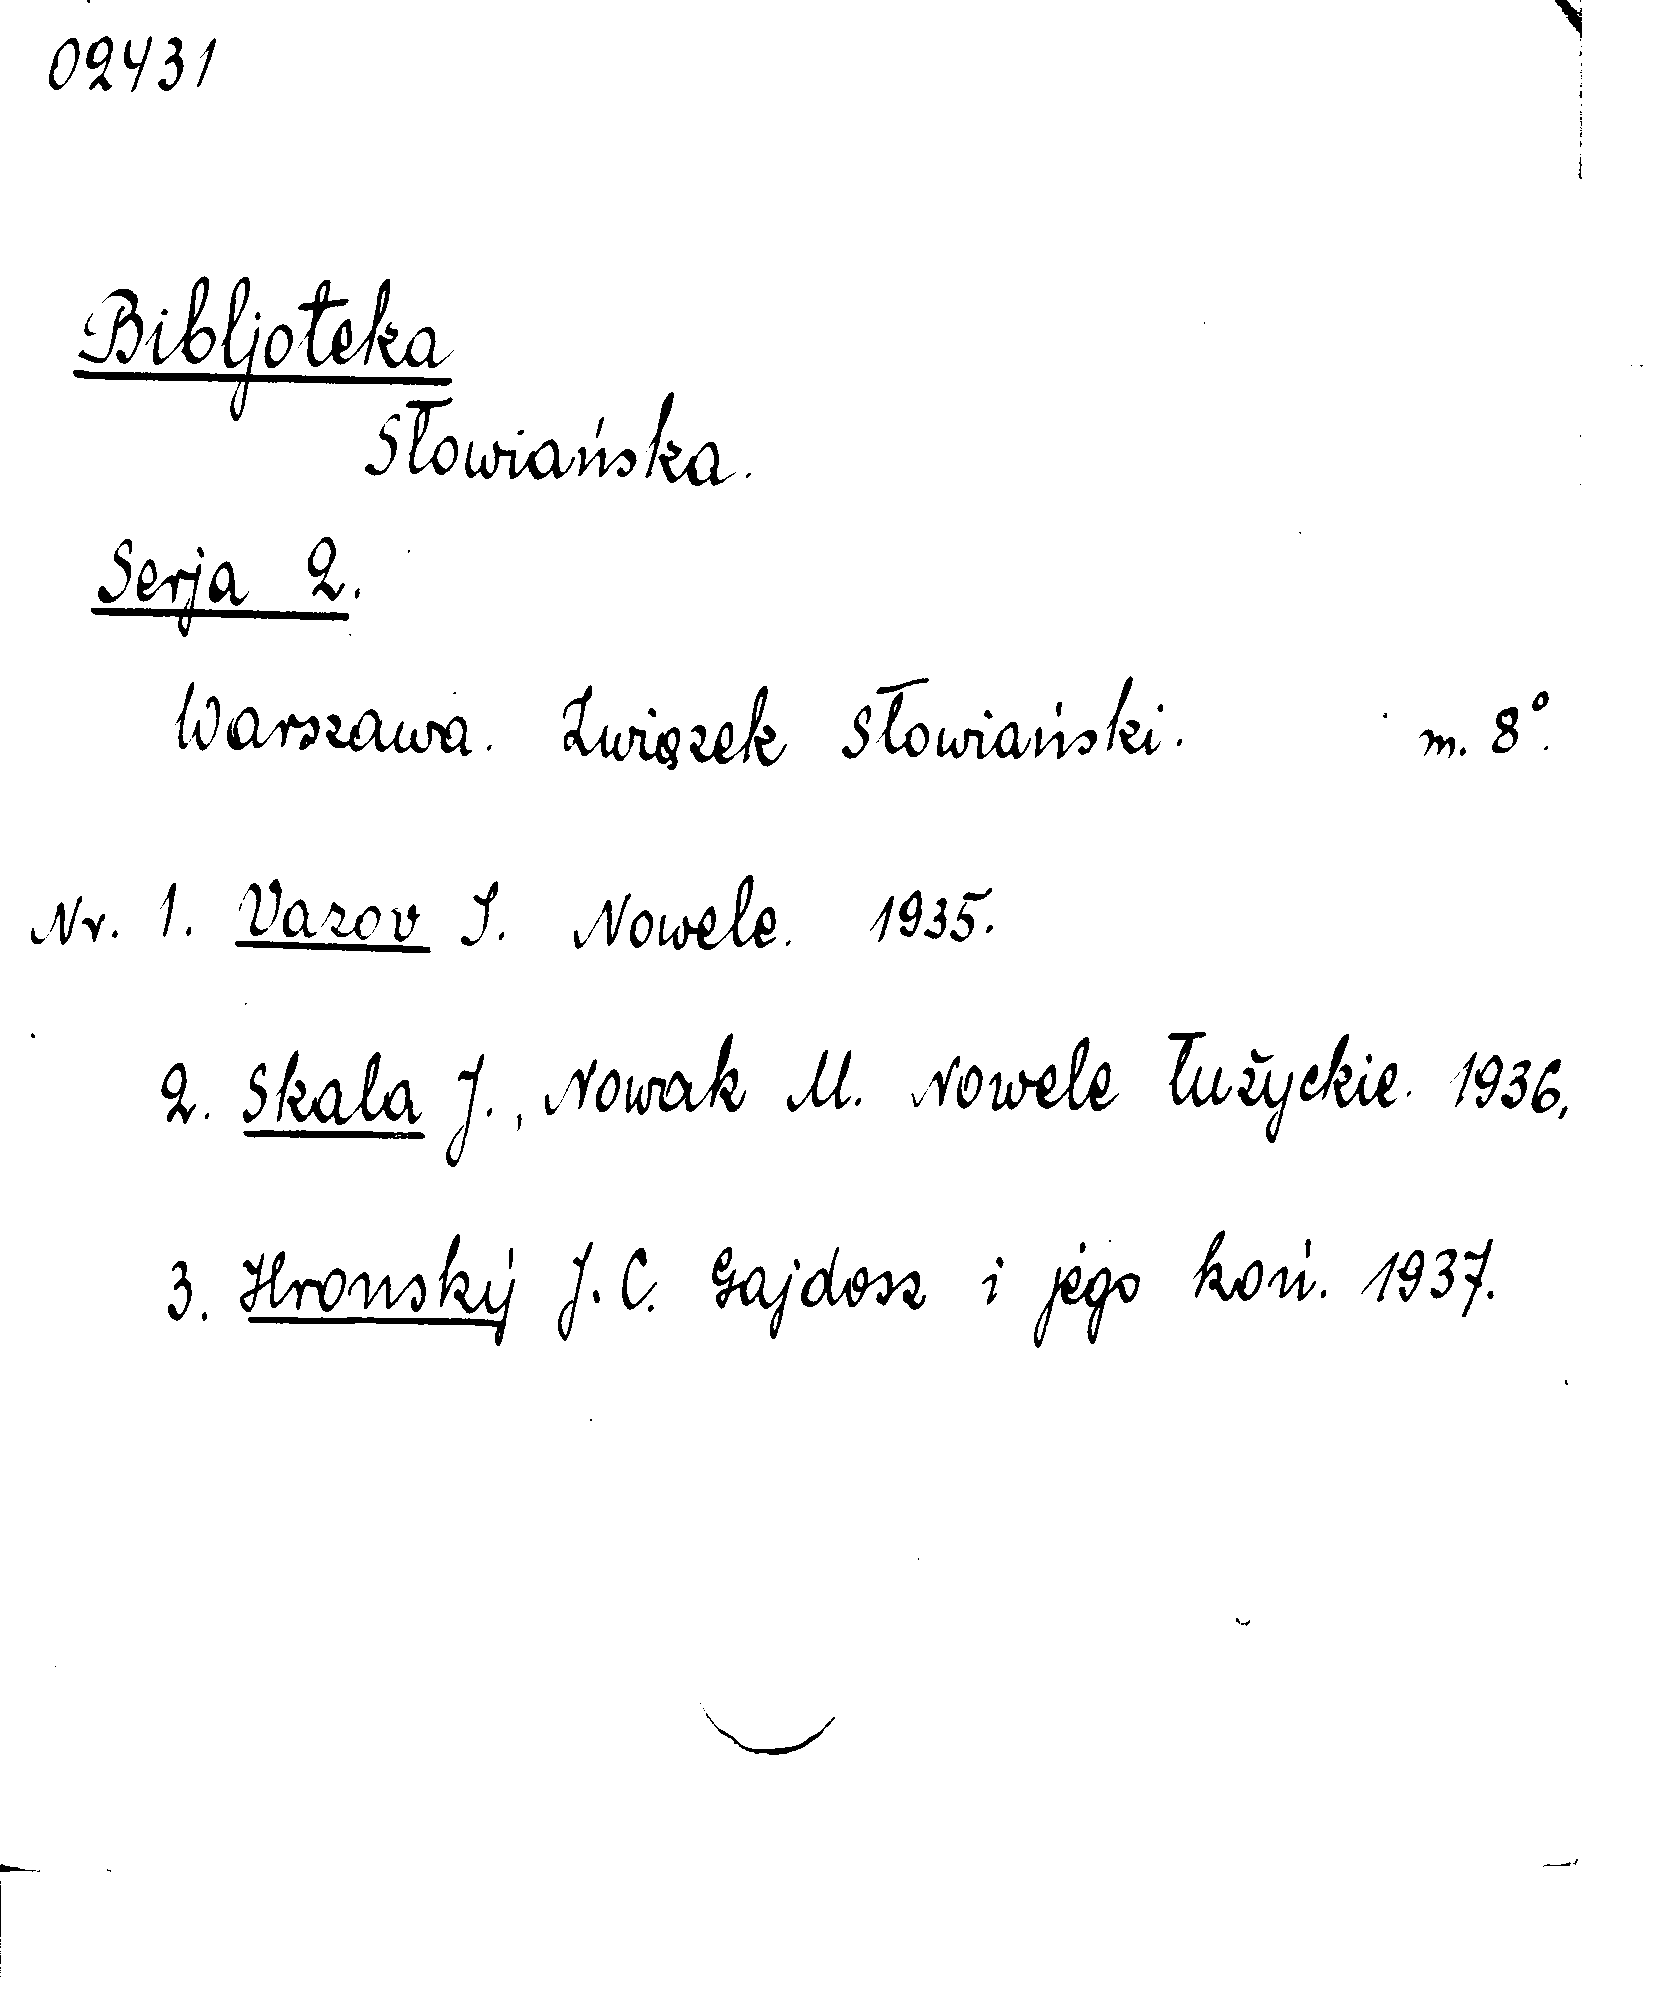 02431
Bibljoteka
Słowiańska.
Serja 2.
Warszawa. Związek Słowiański. m. 8°.
Nr. 1. Vazov I. Nowele. 1935.
2. Skala J., Nowak M. Nowele Łużyckie. 1936.
3. Hronský J. C. Gajdosz i jego koń. 1937.